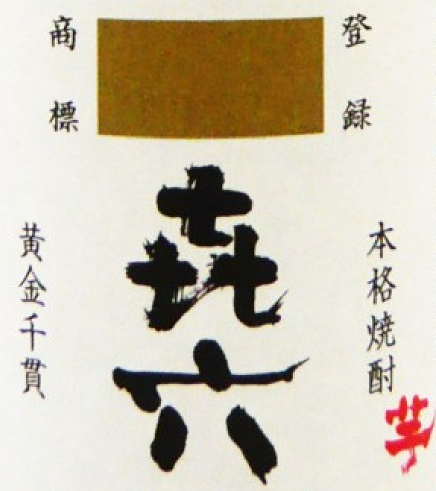 登録
商標
本格焼酎
芋
㐂六
黄金千貫